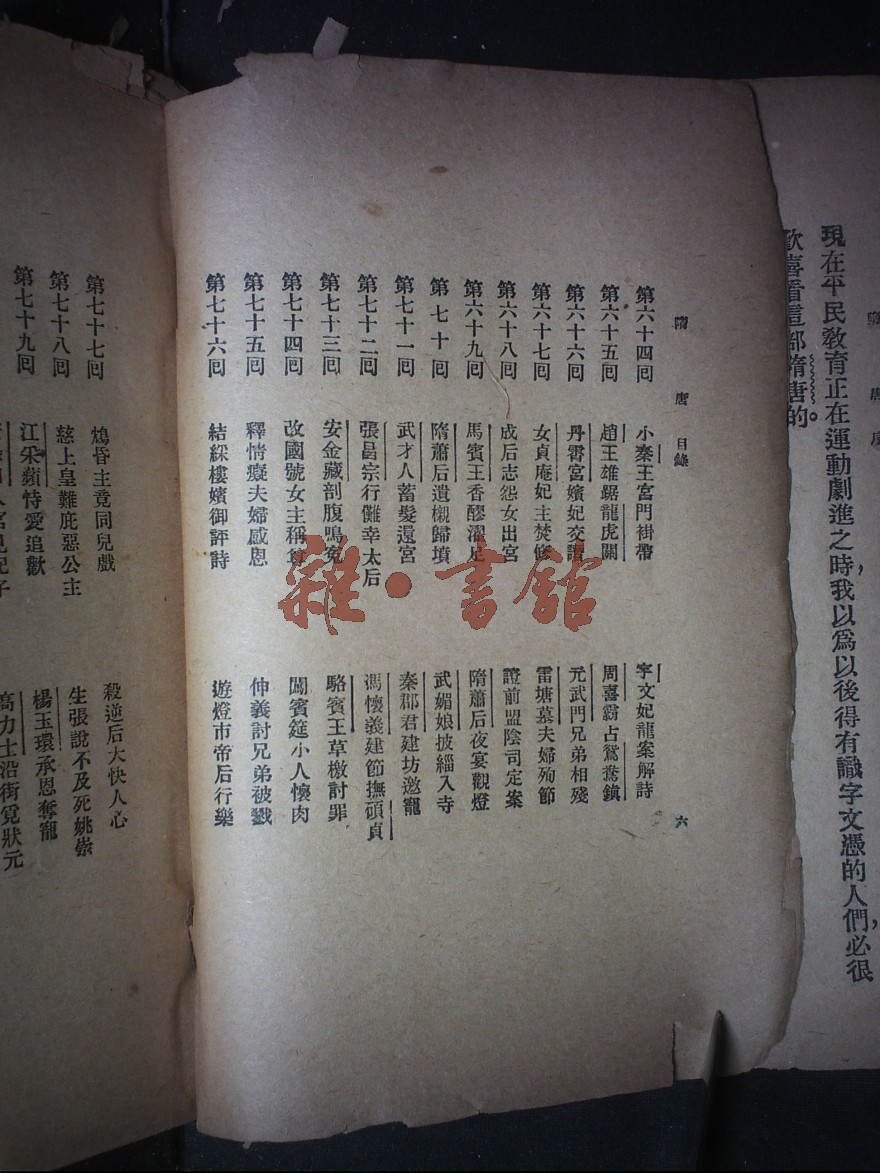 隋唐
現在平民敎育正在運動劇進之時，我以爲以後得有識字文憑的人們，必很
歡喜看這部隋唐的。
隋唐 目錄 六
第六十四囘 小秦王宮門褂帶 宇文妃龍案解詩
第六十五囘 趙王雄踞龍虎關 周喜霸占鴛鴦鎮
第六十六囘 丹霄宮嬪妃交譖 元武門兄弟相殘
第六十七囘 女貞庵妃主焚修 雷塘墓夫婦殉節
第六十八囘 成后志怨女出宮 證前盟陰司定案
第六十九囘 馬賓王香醪濯足 隋蕭后夜宴觀燈
第七十囘 隋蕭后遺櫬歸墳 武媚娘披緇入寺
第七十一囘 武才人蓄髮還宮 秦郡君建坊邀寵
第七十二囘 張昌宗行儺幸太后 馮懷義建節撫碩貞
第七十三囘 安金藏剖腹鳴冤 駱賓王草檄討罪
第七十四囘 改國號女主稱尊 闖賓筵小人懷肉
第七十五囘 釋情癡夫婦感恩 伸義討兄弟被戮
第七十六囘 結綵樓嬪御評詩 遊燈市帝后行樂
第七十七囘 鴆昏主竟同兒戲 殺逆后大快人心
第七十八囘 慈上皇難庇惡公主 生張說不及死姚崇
第七十九囘 江采蘋恃愛追歡 楊玉環承恩奪寵
高力士沿街覓狀元
雜·書館